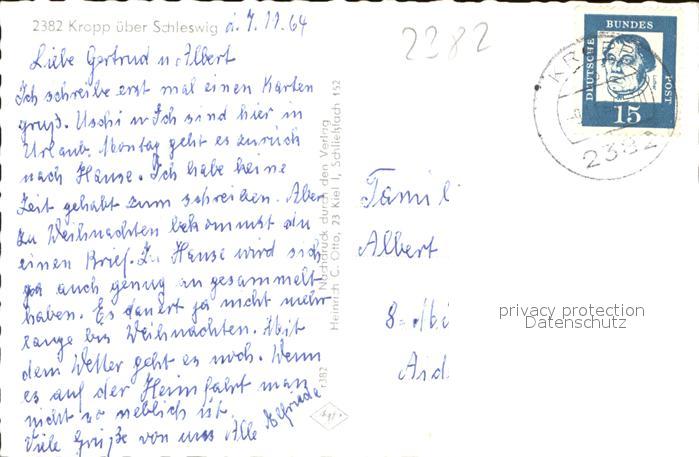 2382 Kropp über Schleswig d. 7.11.64
2382
Liebe Gertrud u. Albert
Ich schreibe erst mal einen Karten
gruß. Uschi u Ich sind hier in
Urlaub. Montag geht es zurück
nach Hause. Ich habe keine
Zeit gehabt zum schreiben. Aber
zu Weihnachten bekommst du
einen Brief. Zu Hause wird sich
ja auch genug an gesammelt
haben. Es dauert ja nicht mehr
lange bis Weihnachten. Mit
dem Wetter geht es noch. Wenn
es auf der Heimfahrt man
nicht so neblich ist.
Viele Grüße von uns Alle Elfriede
Nachdruck durch den Verlag
Heinrich C. Otto, 23 Kiel 1, Schließfach 152
1382
DEUTSCHE BUNDES POST
15
KROPP
2382
Famil
Albert
8
Aid
privacy protection
Datenschutz